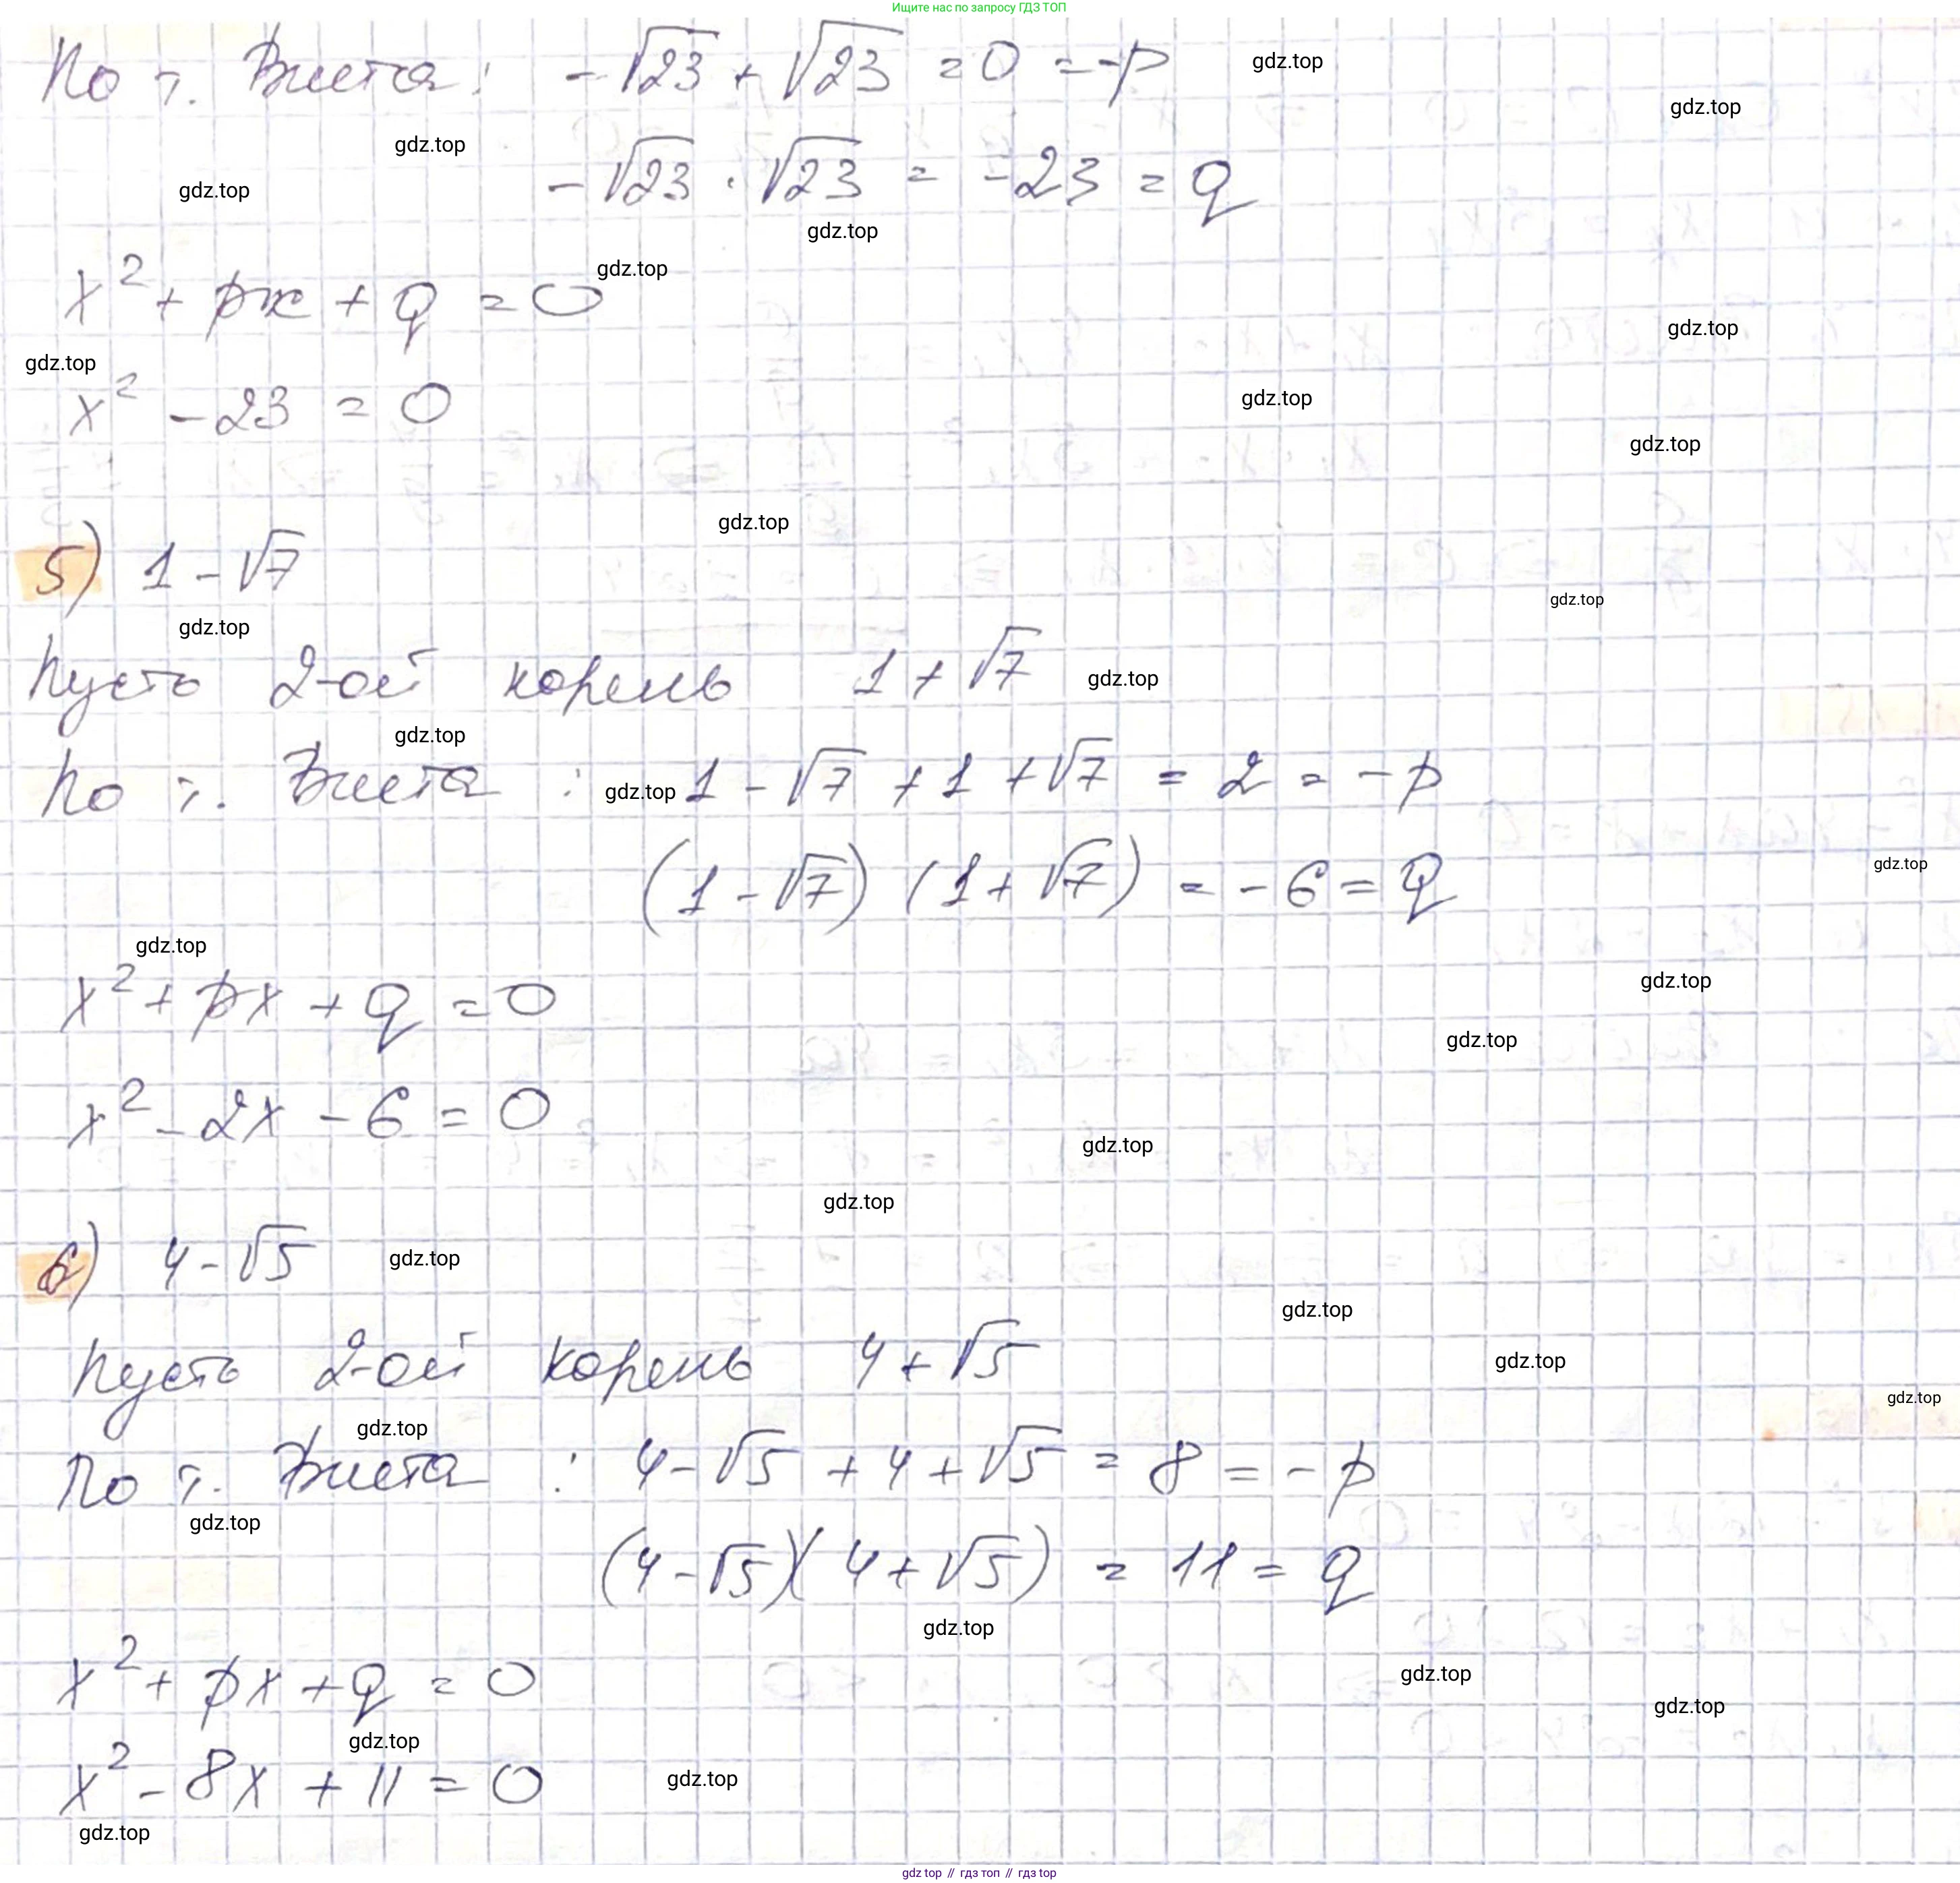 Ищите нас по запросу ГДЗ ТОП
По т. Виета: -√23 + √23 = 0 = -p
gdz.top
gdz.top
gdz.top
-√23 · √23 = -23 = q
gdz.top
gdz.top
gdz.top
x² + px + q = 0
gdz.top
gdz.top
x² - 23 = 0
gdz.top
gdz.top
gdz.top
5) 1 - √7
gdz.top
gdz.top
Пусть 2-ой корень 1 + √7
gdz.top
gdz.top
По т. Виета : 1 - √7 + 1 + √7 = 2 = -p
gdz.top
(1 - √7) (1 + √7) = -6 = q
gdz.top
gdz.top
gdz.top
x² + px + q = 0
gdz.top
x² - 2x - 6 = 0
gdz.top
gdz.top
6) 4 - √5
gdz.top
gdz.top
Пусть 2-ой корень 4 + √5
gdz.top
gdz.top
gdz.top
По т. Виета : 4 - √5 + 4 + √5 = 8 = -p
gdz.top
(4 - √5)(4 + √5) = 11 = q
gdz.top
x² + px + q = 0
gdz.top
gdz.top
gdz.top
x² - 8x + 11 = 0
gdz.top
gdz.top
gdz top // гдз топ // гдз top